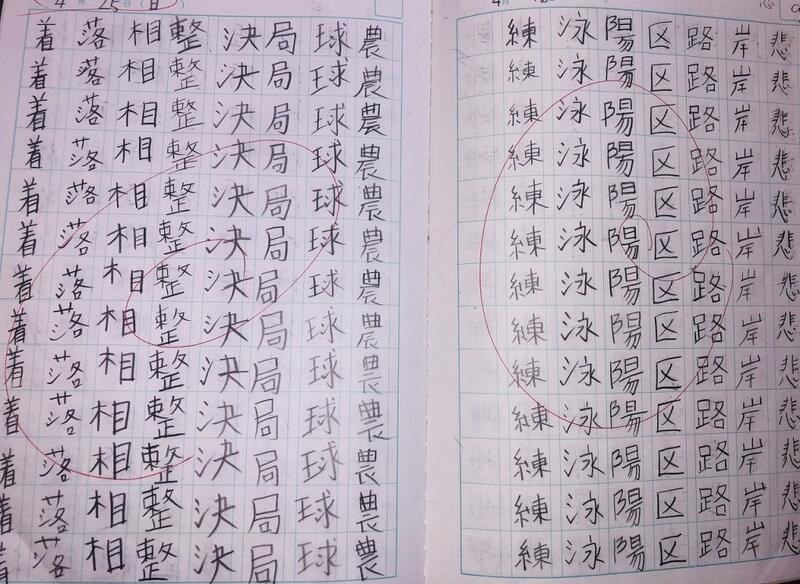 4月
悲悲悲悲悲悲悲悲悲悲悲悲悲
岸岸岸岸岸岸岸岸岸岸岸岸岸
路路路路路路路路路路路路路
区区区区区区区区区区区区区
陽陽陽陽陽陽陽陽陽陽陽陽陽
泳泳泳泳泳泳泳泳泳泳泳泳泳
練練練練練練練練練練練練練
4月25日(日)
農農農農農農農農農農農農農
球球球球球球球球球球球球球
局局局局局局局局局局局局局
決決決決決決決決決決決決決
整整整整整整整整整整整整整
相相相相相相相相相相相相相
落落落落落落落落落落落落落
着着着着着着着着着着着着着